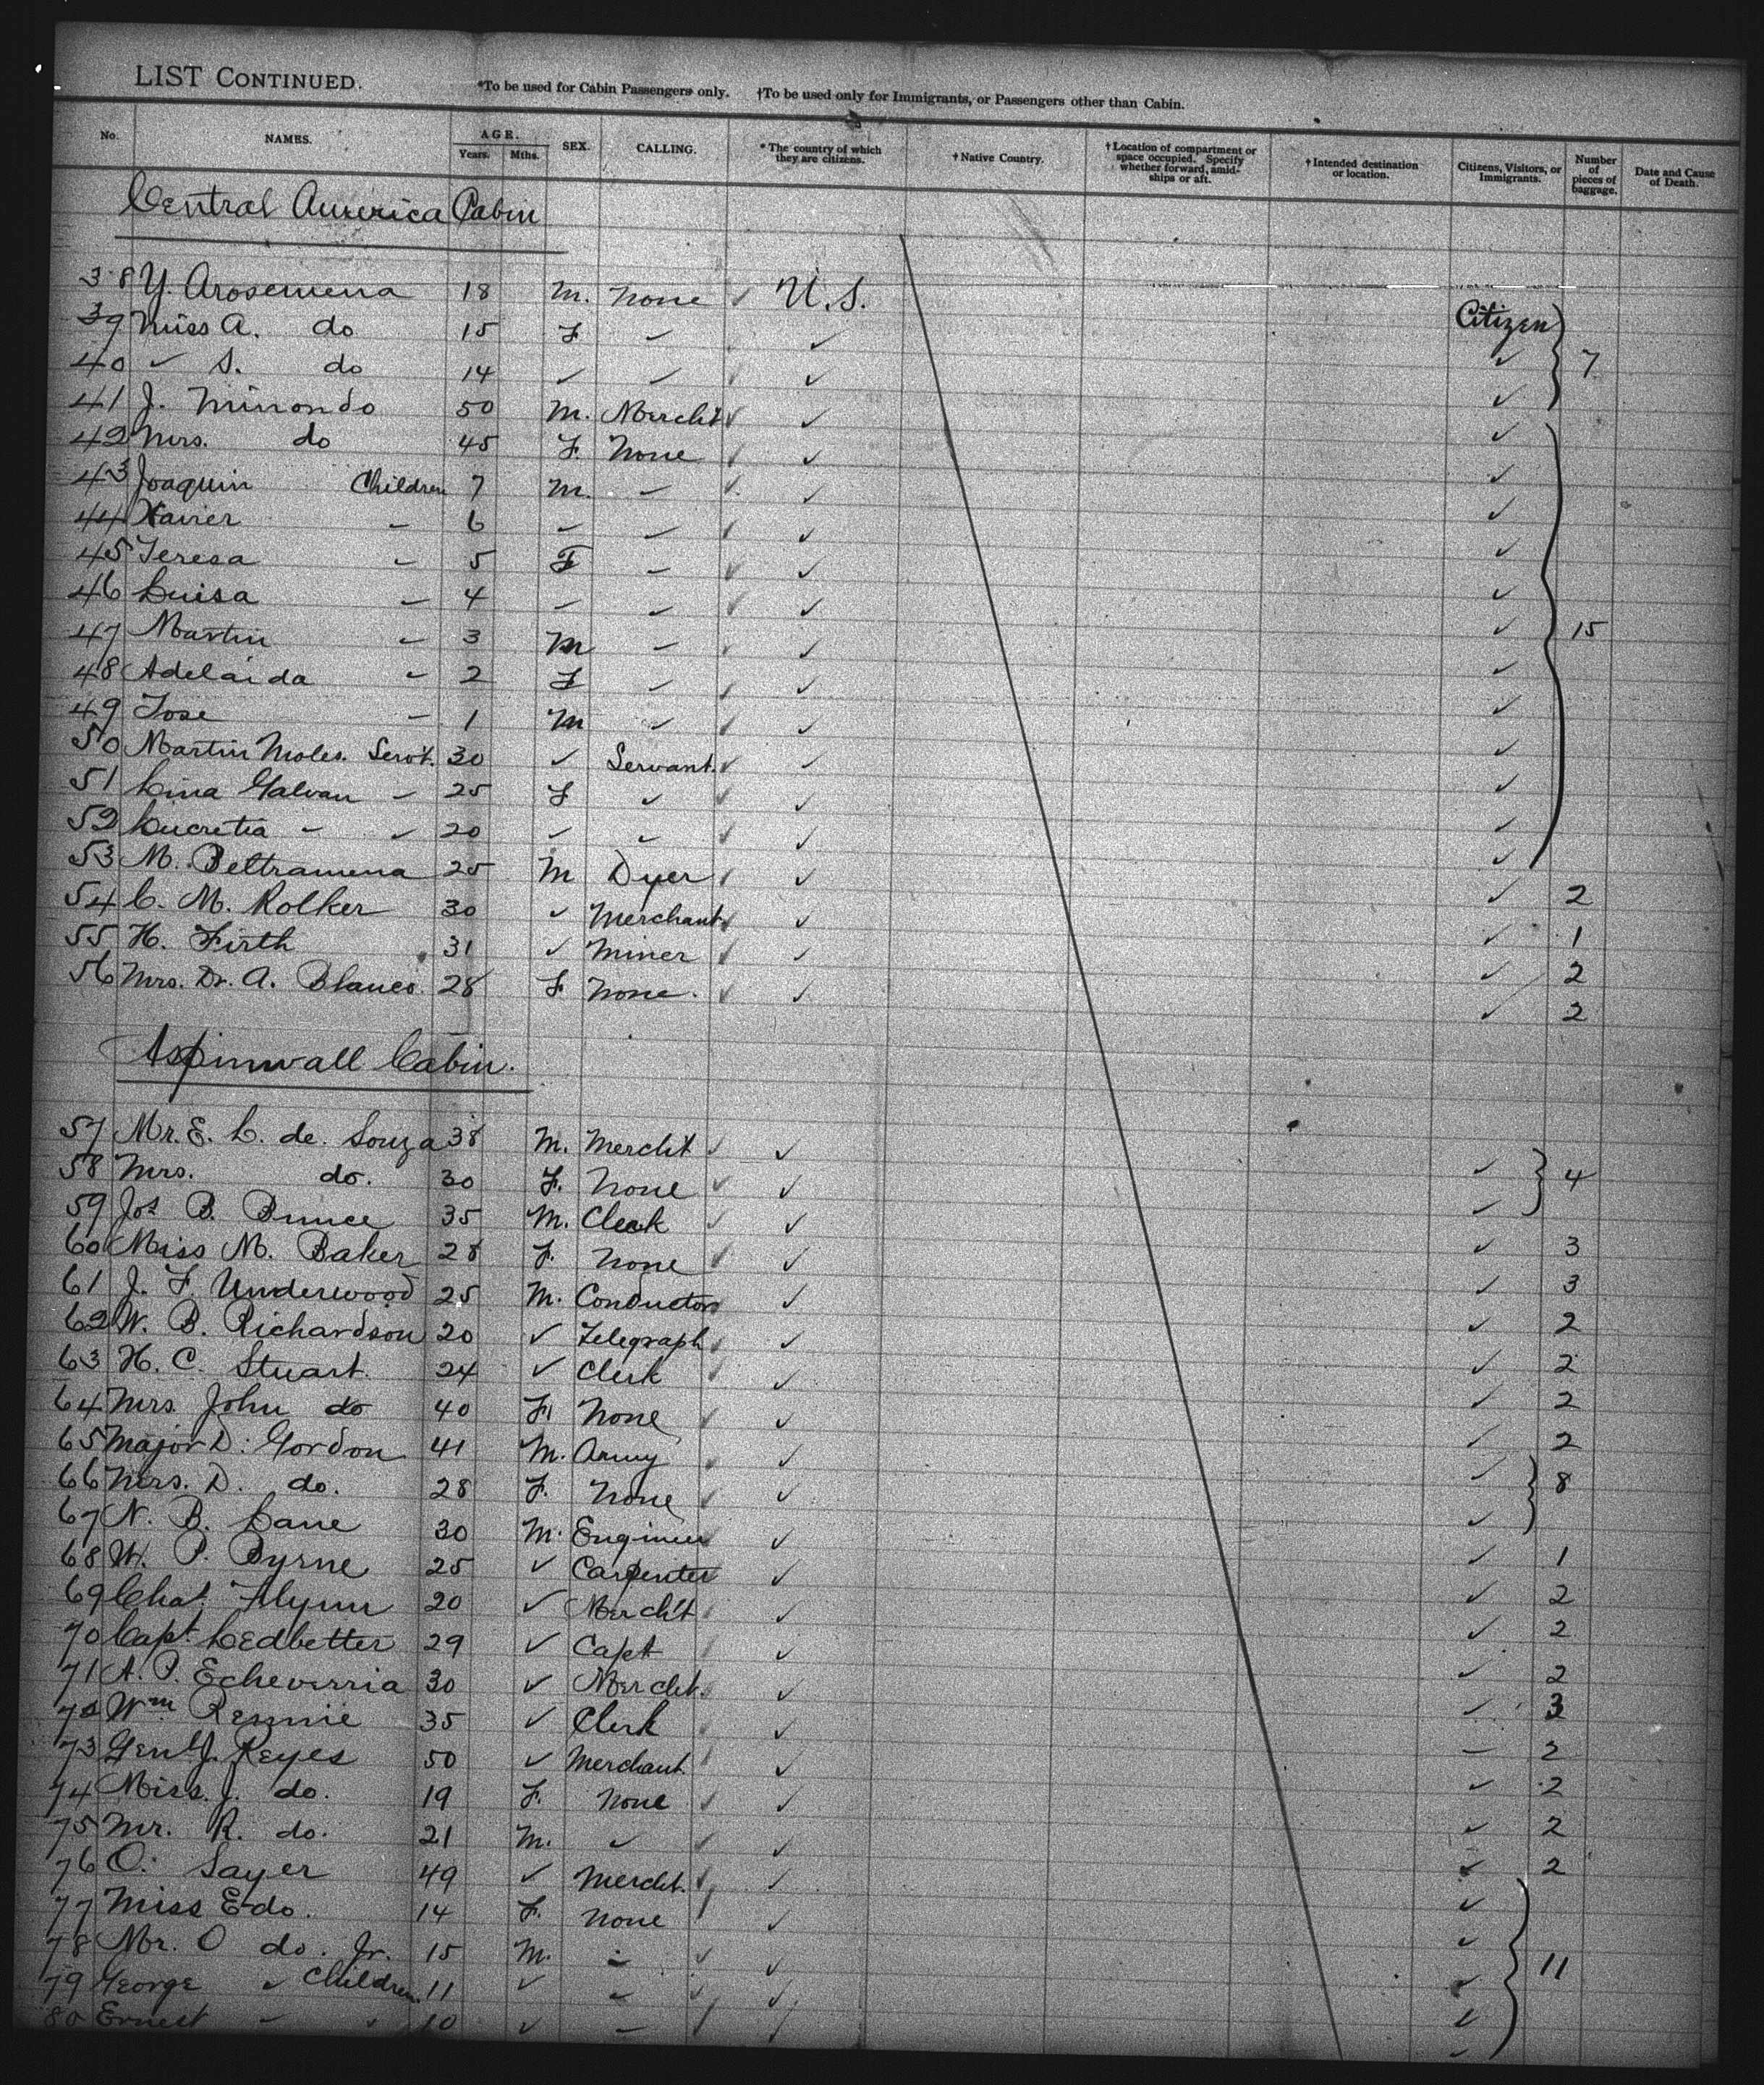 LIST CONTINUED. *To be used for Cabin Passengers only. †To be used only for Immigrants, or Passengers other than Cabin.
No. NAMES. AGE. Years. Mths. SEX. CALLING. * The country of which they are citizens. † Native Country. † Location of compartment or space occupied. Specify whether forward, amidships or aft. † Intended destination or location. Citizens, Visitors, or Immigrants. Number of pieces of baggage. Date and Cause of Death.
Central America Cabin
38 Y. Arosemena 18 M. None ✓ U.S. Citizen
39 Miss A. do 15 F ✓ ✓ ✓ 7
40 ✓ S. do 14 ✓ ✓ ✓ ✓ ✓
41 J. Minondo 50 M. Mercht ✓ ✓ ✓
42 Mrs. do 45 F. None ✓ ✓ ✓
43 Joaquin Children 7 M. - ✓ ✓ ✓
44 Xavier - 6 - - ✓ ✓ ✓
45 Teresa - 5 F - ✓ ✓ ✓
46 Luisa - 4 - - ✓ ✓ ✓
47 Martin - 3 M - ✓ ✓ ✓ 15
48 Adelaida - 2 F - ✓ ✓ ✓
49 Jose - 1 M - ✓ ✓ ✓
50 Martin Moles. Servt. 30 ✓ Servant. ✓ ✓ ✓
51 Lina Galvan - 25 F ✓ ✓ ✓ ✓
52 Lucretia - - 20 - - ✓ ✓ ✓
53 M. Beltramena 25 M Dyer ✓ ✓ ✓ 2
54 C. M. Rolker 30 ✓ Merchant ✓ ✓ ✓ 1
55 H. Firth 31 ✓ Miner ✓ ✓ ✓ 2
56 Mrs. Dr. A. Blanco 28 F None. ✓ ✓ ✓ 2
Aspinwall Cabin.
57 Mr. E. L. de. Souza 38 M. Mercht ✓ ✓ ✓
58 Mrs. do. 30 F. None ✓ ✓ ✓ 4
59 Jos B. Bunce 35 M. Clerk ✓ ✓ ✓ 3
60 Miss M. Baker 28 F. None ✓ ✓ ✓ 3
61 J. F. Underwood 25 M. Conductor ✓ ✓ 2
62 W. B. Richardson 20 ✓ Telegraph ✓ ✓ ✓ 2
63 H. C. Stuart. 24 ✓ Clerk ✓ ✓ ✓ 2
64 Mrs. John do 40 F. None ✓ ✓ ✓ 2
65 Major D. Gordon 41 M. Army ✓ ✓
66 Mrs. D. do. 28 F. None ✓ ✓ ✓ 8
67 N. B. Lane 30 M. Engineer ✓ ✓ 1
68 W. P. Byrne 25 ✓ Carpenter ✓ ✓ 2
69 Chas. Flynn 20 ✓ Mercht ✓ ✓ ✓ 2
70 Capt. Ledbetter 29 ✓ Capt ✓ ✓ 2
71 A. P. Echeverria 30 ✓ Mercht. ✓ ✓ 3
72 Wm Rennie 35 ✓ Clerk ✓ - 2
73 Genl J. Reyes 50 ✓ Merchant. ✓ ✓ ✓ 2
74 Miss. J. do. 19 F. None ✓ ✓ ✓ 2
75 Mr. R. do. 21 M. ✓ ✓ ✓ ✓ 2
76 O. Sayer 49 ✓ Mercht. ✓ ✓ ✓
77 Miss E do. 14 F. None ✓ ✓ ✓
78 Mr. O do. Jr. 15 M. - ✓ ✓ ✓ 11
79 George ✓ Children. 11 ✓ - ✓ ✓ ✓
80 Ernest - - 10 ✓ - ✓ ✓ ✓